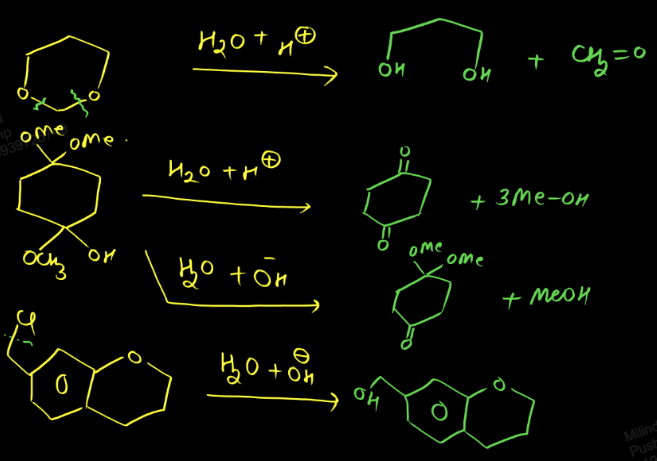 H₂O + H⊕
OH OH + CH₂=O
O O
OMe OMe.
H₂O + H⊕
O
O
+ 3Me-OH
OCH₃ OH
H₂O + OH⁻
OMe OMe
O
+ MeOH
Cl
O
H₂O + OH⊖
OH
O
Milind
Push